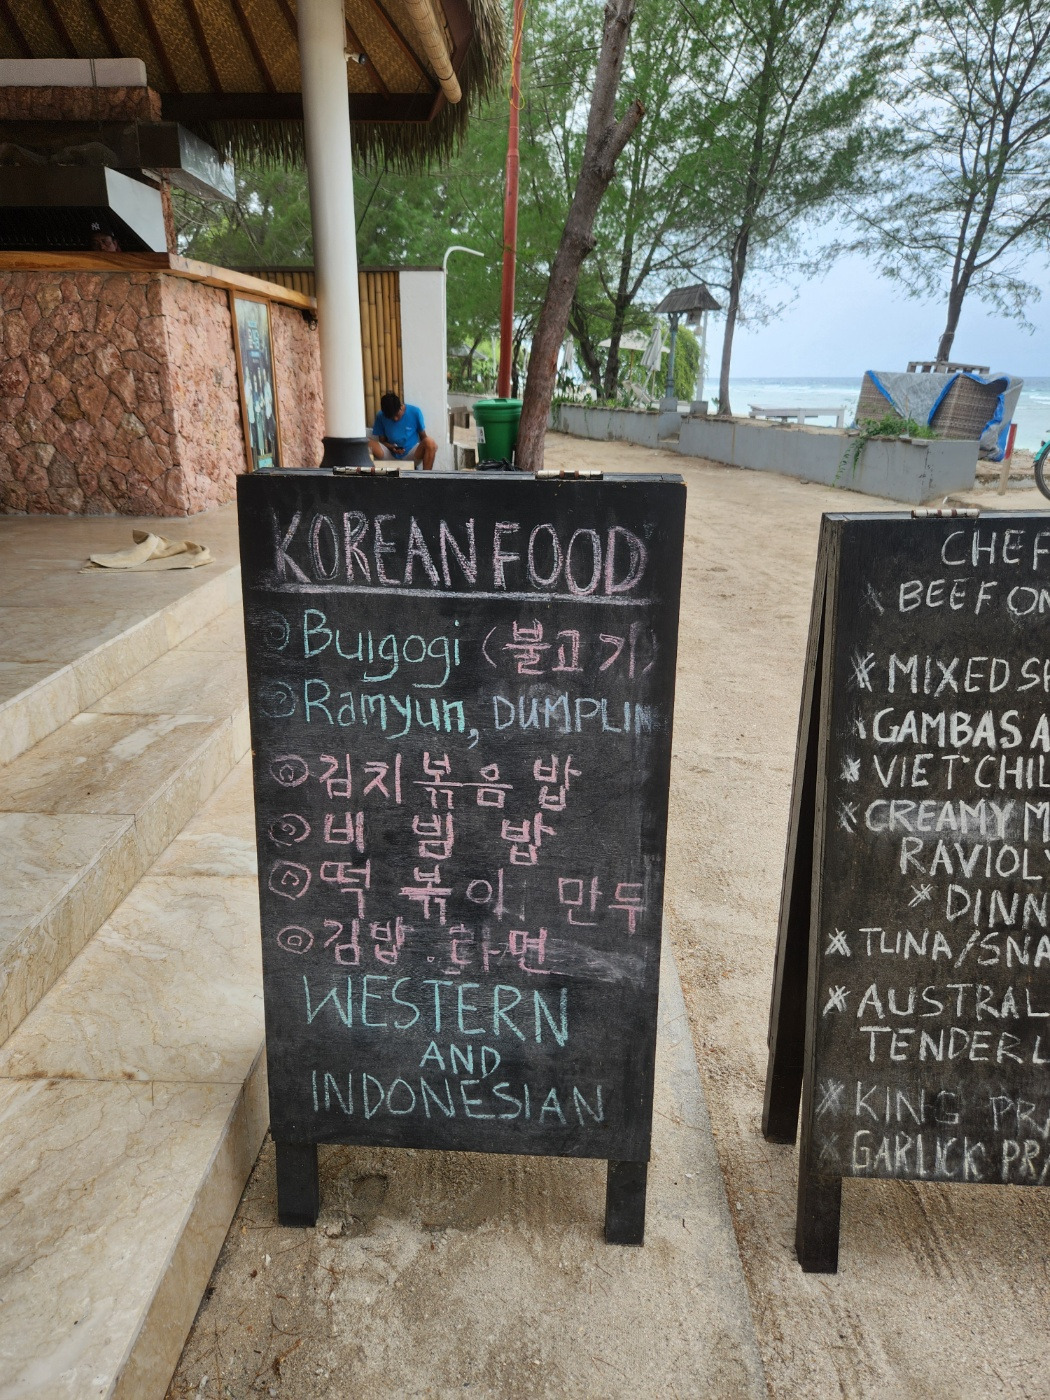 KOREAN FOOD
Bulgogi (불고기)
Ramyun, DUMPLIN
김치 볶음 밥
비 빔 밥
떡 볶이 만두
김밥 라면
WESTERN
AND
INDONESIAN
CHEF
BEEF ON
MIXED S
GAMBAS A
VIET CHIL
CREAMY M
RAVIOLY
DINN
TUNA/SNA
AUSTRAL
TENDERL
KING PRA
GARLICK PRA